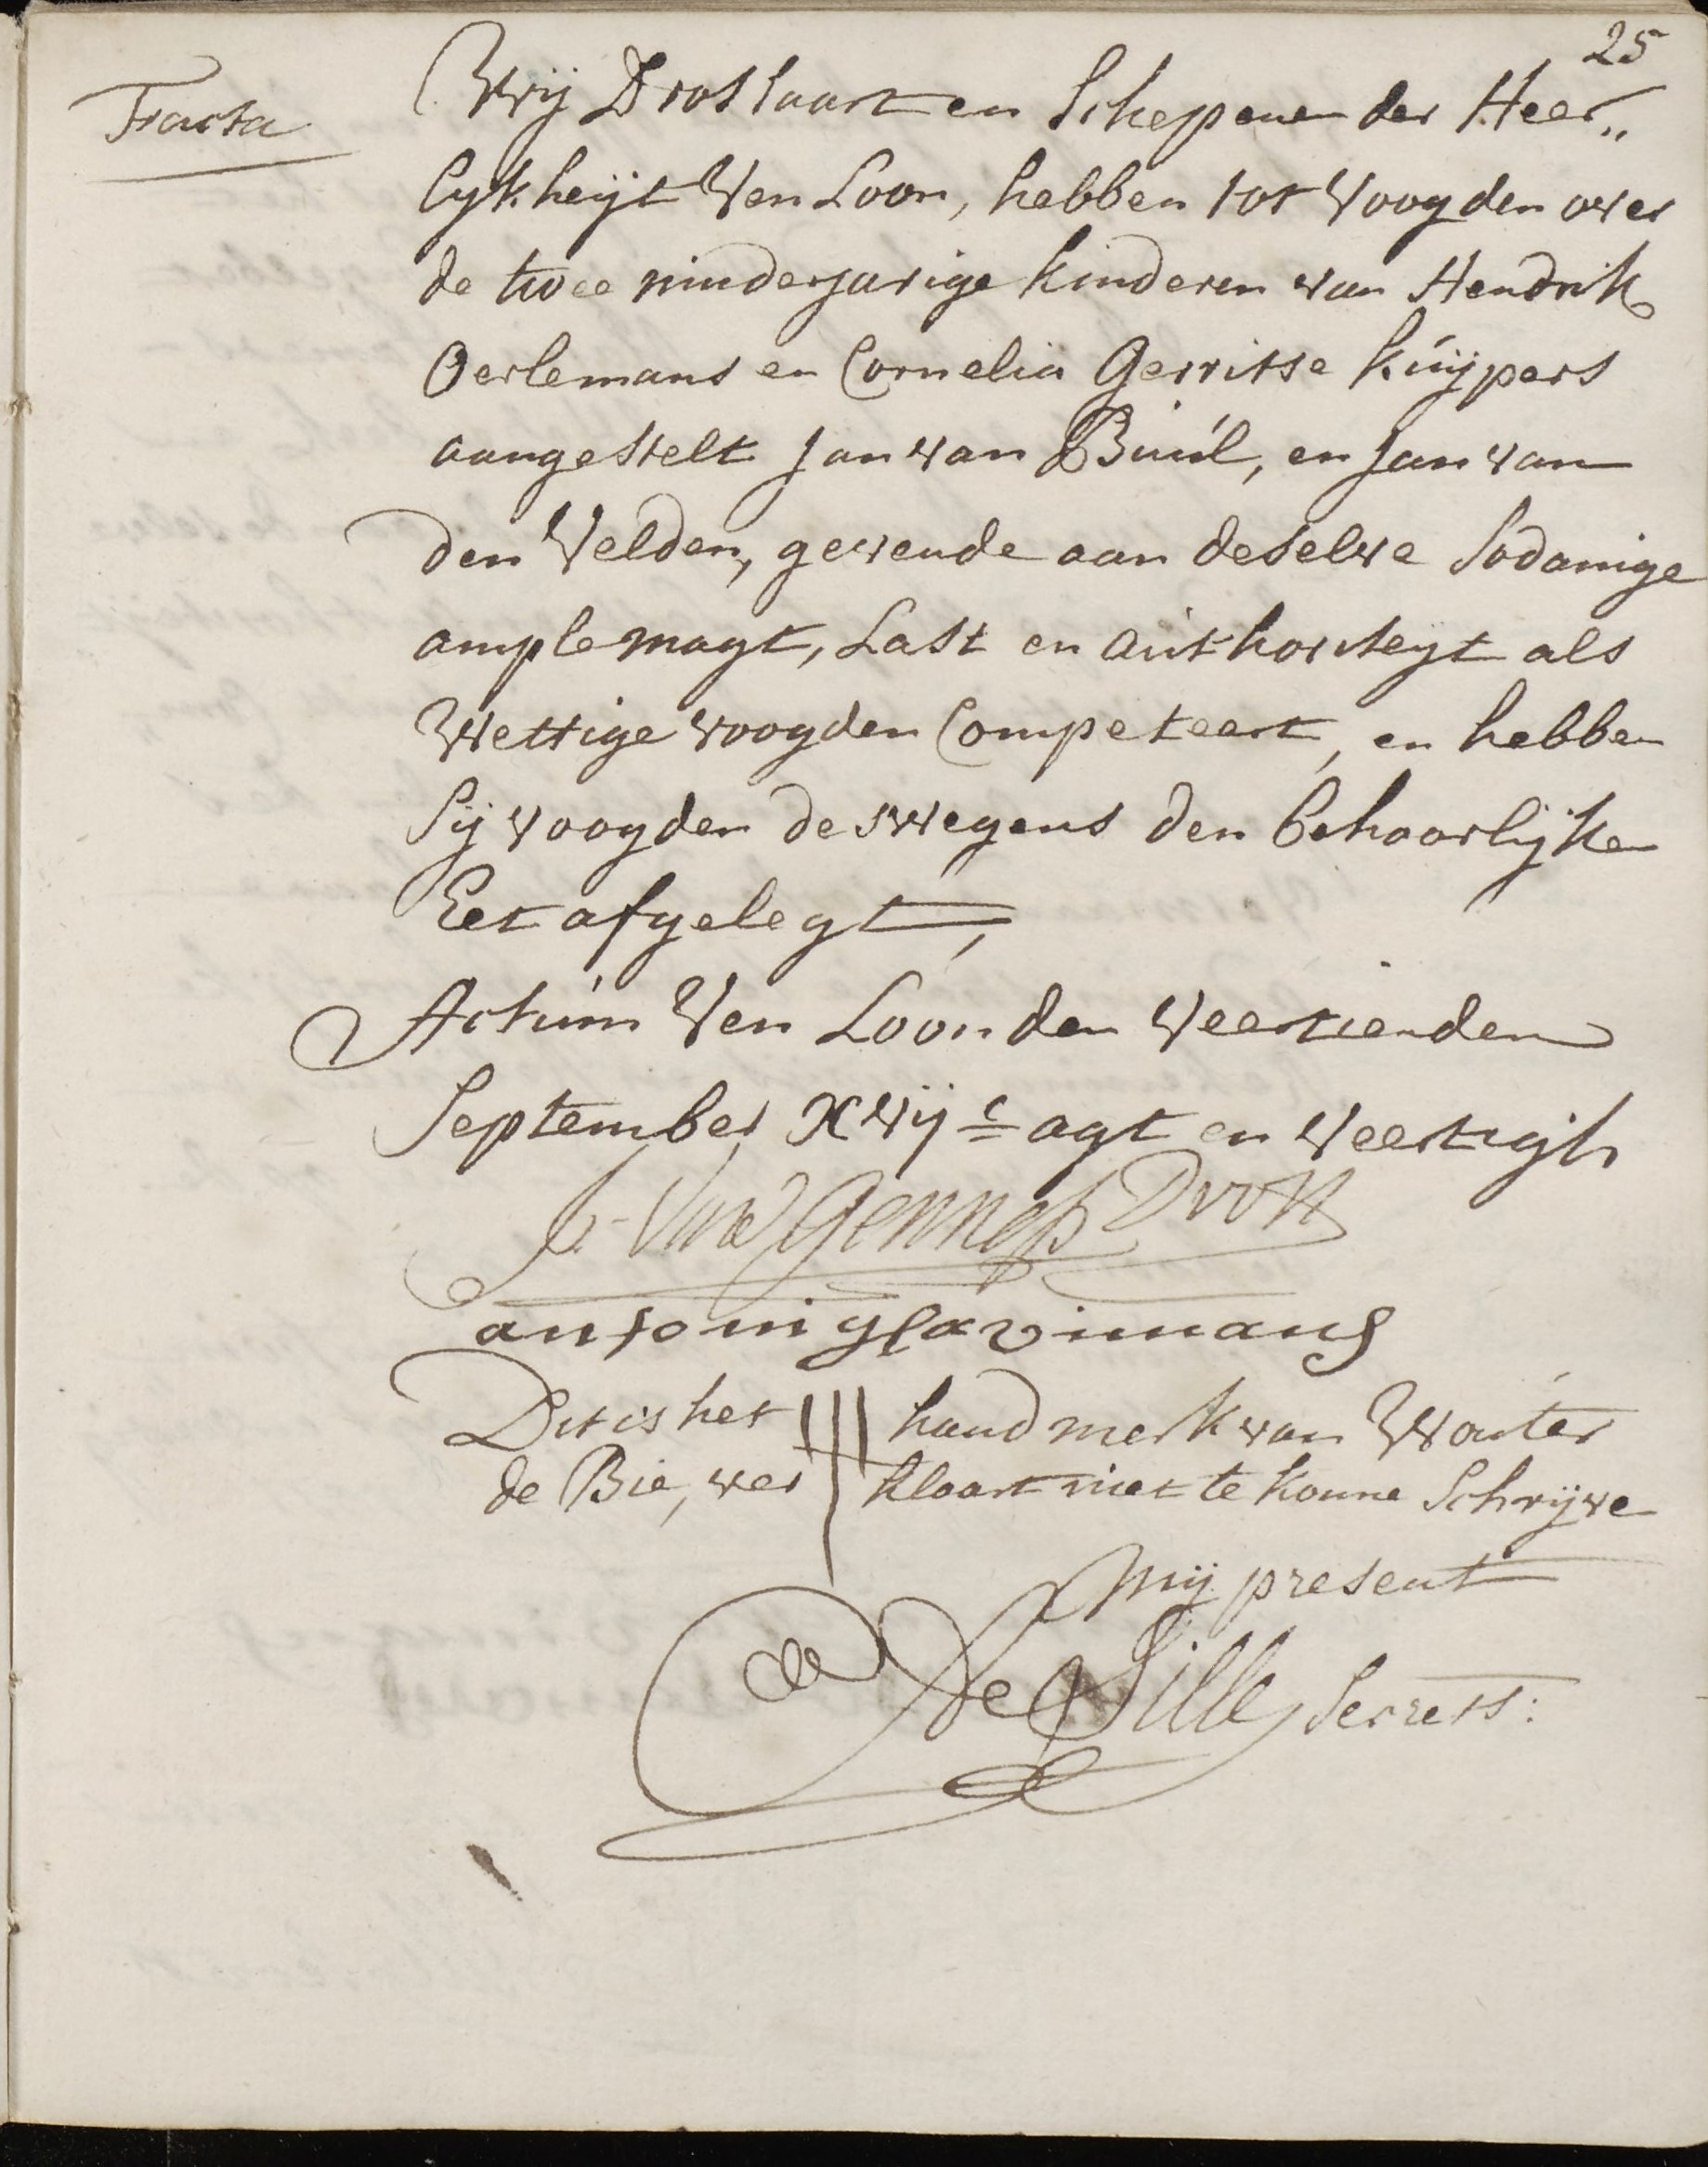 25
Fracta
Wij Drossaart en Schepenen der Heer„
lykheijt Ven Loon, hebben tot Voogden over
de twee minderjarige kinderen van Hendrik
Oerlemans en Cornelia Gerritse Kuijpers
aangestelt Jan van Buul, en Jan van
den Velden, gevende aan deselve Sodanige
ample magt, Last en authoriteyt als
Wettige voogden Competeert, en hebben
Sij voogden deswegens den behoorlijke
Eet afgelegt,
Actum Ven Loon den Veertienden
September XVIJc agt en Veertigh
Van Genneps Drost
antonij glavimans
Dit is het handmerk van Wouter
de Bie, ver klaart niet te konne Schrijve
Mij present
De Sille Secrets: